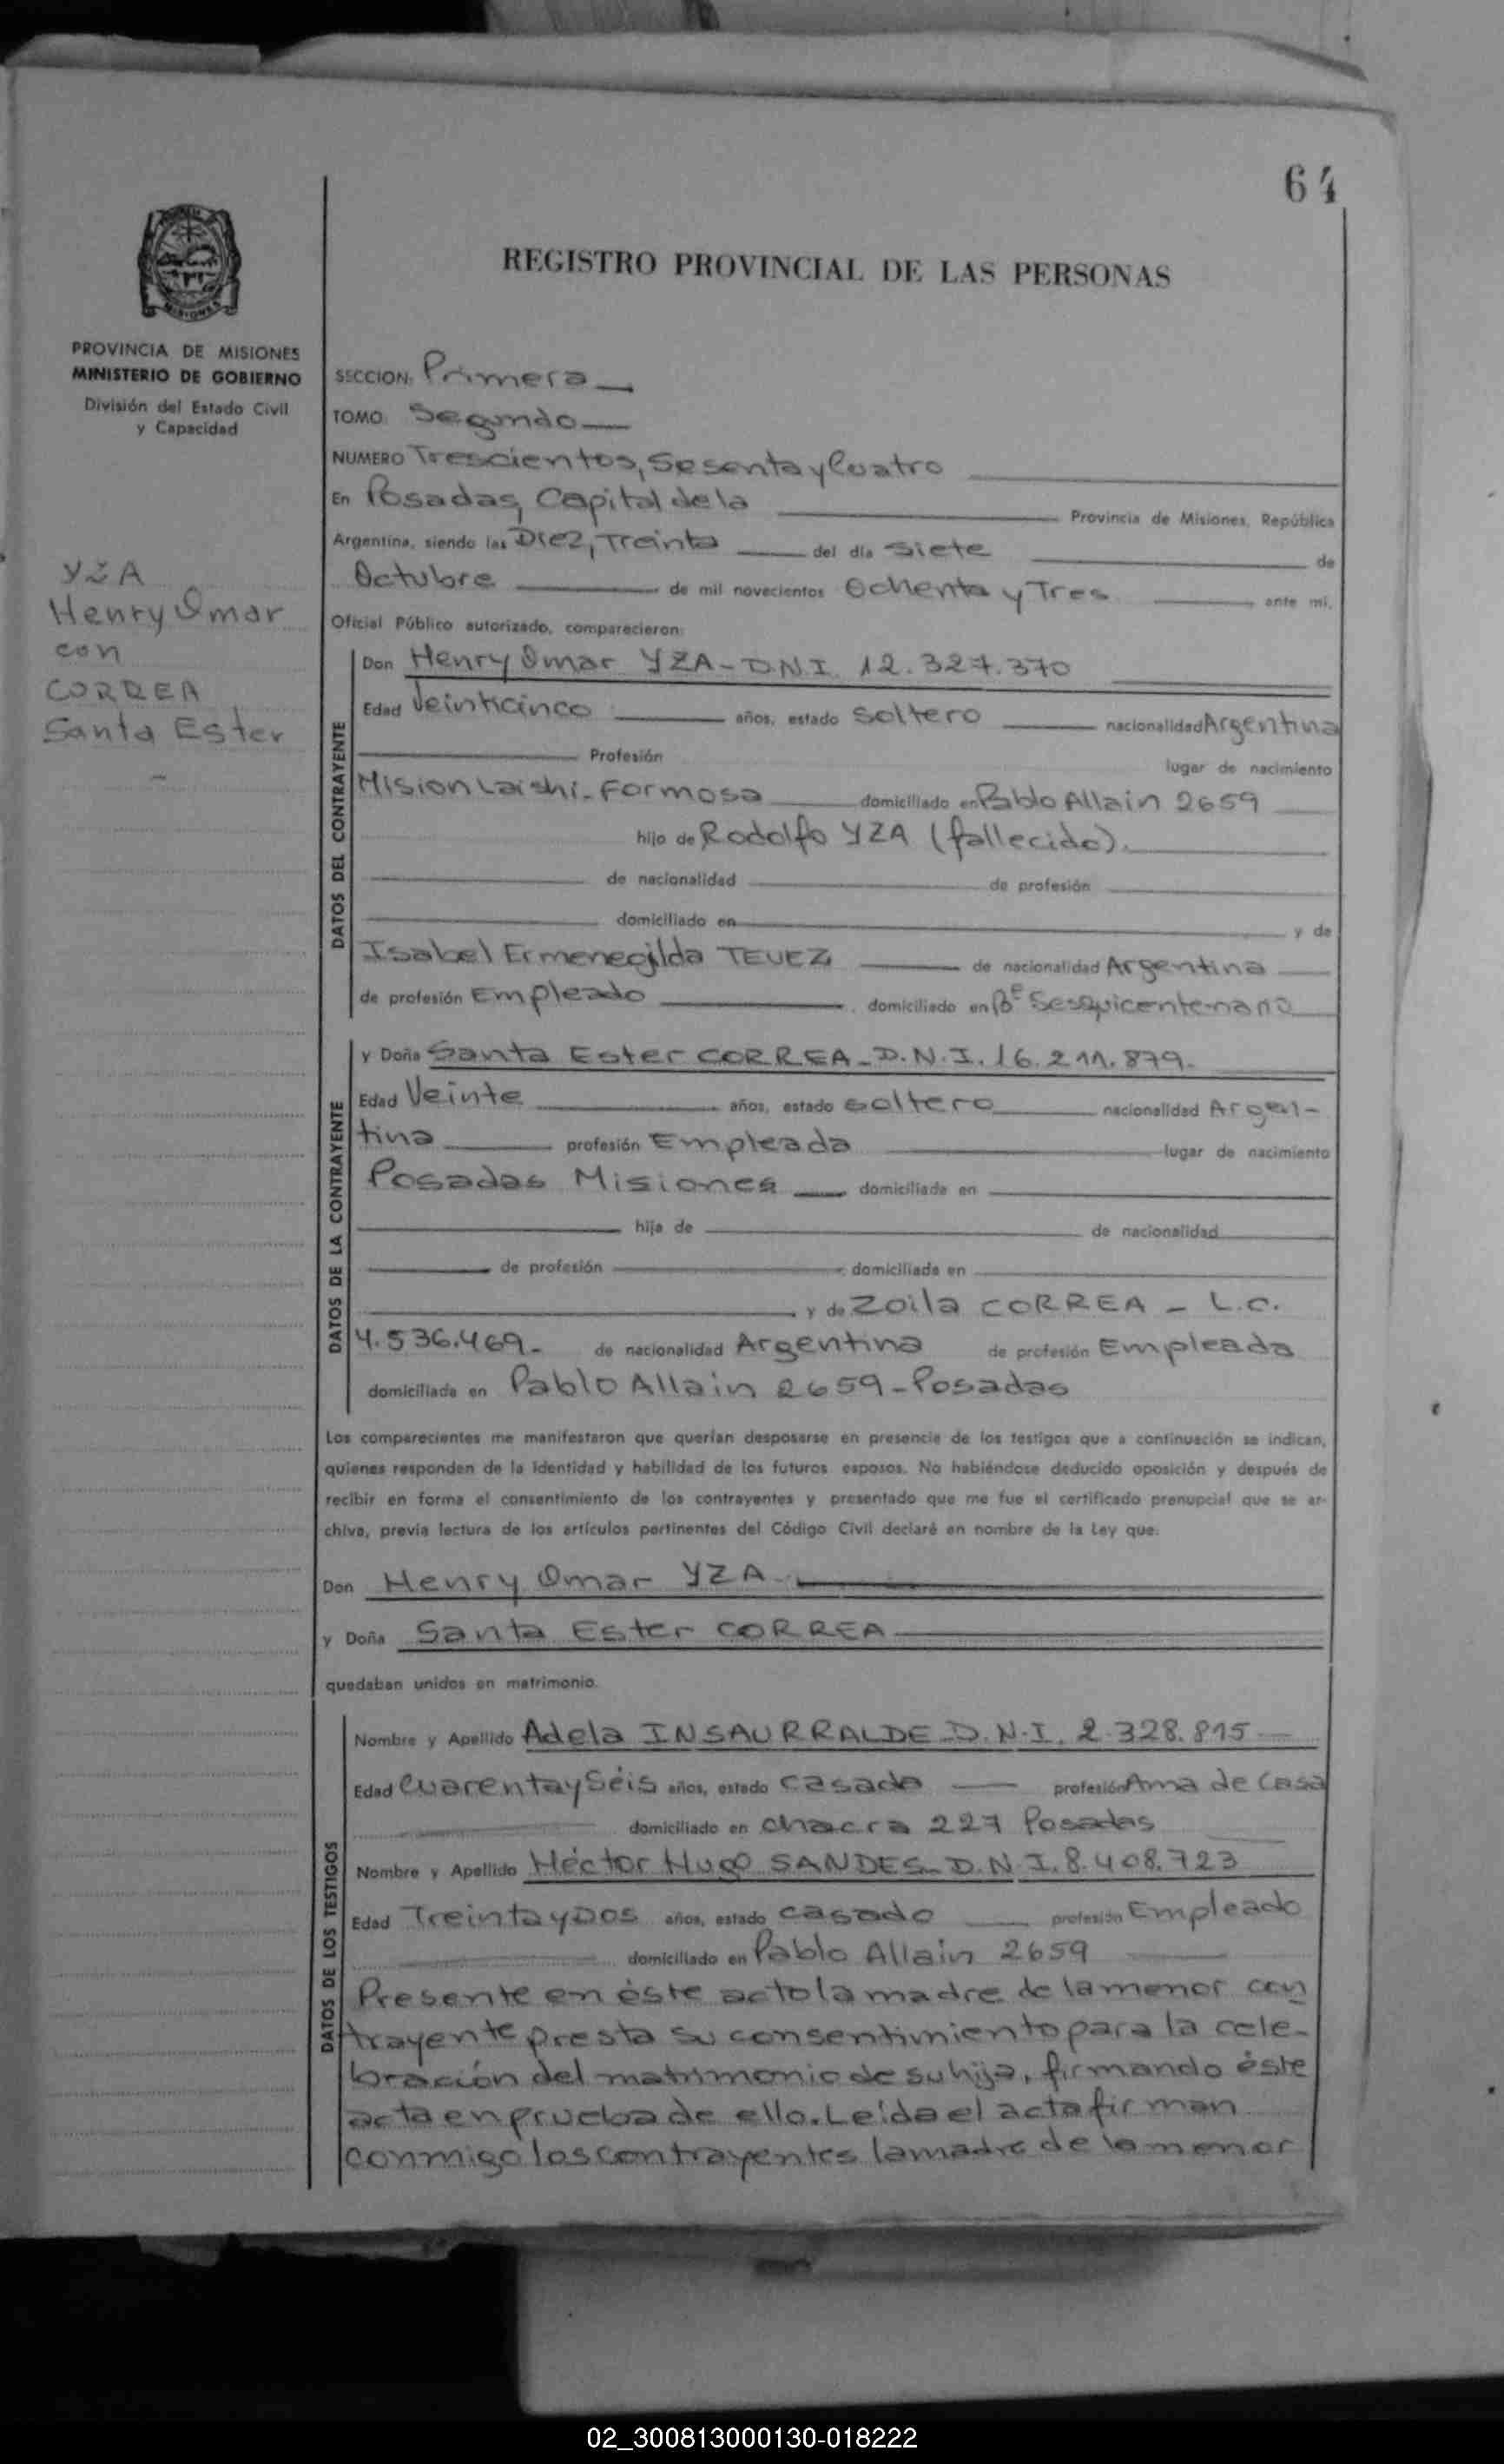 64
REGISTRO PROVINCIAL DE LAS PERSONAS
MISIONES
PROVINCIA DE MISIONES
MINISTERIO DE GOBIERNO
División del Estado Civil
y Capacidad
YZA
Henry Omar
con
CORREA
Santa Ester
SECCION: Primera
TOMO: Segundo
NUMERO Trescientos, Sesenta y Cuatro
En Posadas, Capital de la Provincia de Misiones, República
Argentina, siendo las Diez, Treinta del día Siete de
Octubre de mil novecientos Ochenta y Tres ante mí,
Oficial Público autorizado, comparecieron:
DATOS DEL CONTRAYENTE
Don Henry Omar YZA - D.N.I. 12.327.370
Edad Veinticinco años, estado Soltero nacionalidad Argentina
Profesión lugar de nacimiento
Mision Laishi - Formosa domiciliado en Pablo Allain 2659
hijo de Rodolfo YZA (fallecido).
de nacionalidad de profesión
domiciliado en y de
Isabel Ermenegilda TEVEZ de nacionalidad Argentina
de profesión Empleado, domiciliado en Bº Sesquicentenario
DATOS DE LA CONTRAYENTE
y Doña Santa Ester CORREA - D.N.I. 16.211.879.
Edad Veinte años, estado soltero nacionalidad Argen-
tina profesión Empleada lugar de nacimiento
Posadas Misiones domiciliada en
hija de de nacionalidad
de profesión domiciliada en
y de Zoila CORREA - L.C.
4.536.469 - de nacionalidad Argentina de profesión Empleada
domiciliada en Pablo Allain 2659 - Posadas
Los comparecientes me manifestaron que querían desposarse en presencia de los testigos que a continuación se indican,
quienes responden de la identidad y habilidad de los futuros esposos. No habiéndose deducido oposición y después de
recibir en forma el consentimiento de los contrayentes y presentado que me fue el certificado prenupcial que se ar-
chiva, previa lectura de los artículos pertinentes del Código Civil declaré en nombre de la Ley que:
Don Henry Omar YZA
y Doña Santa Ester CORREA
quedaban unidos en matrimonio.
DATOS DE LOS TESTIGOS
Nombre y Apellido Adela INSAURRALDE D.N.I. 2.328.815
Edad Cuarenta y Séis años, estado casada profesión Ama de Casa
domiciliado en chacra 227 Posadas
Nombre y Apellido Héctor Hugo SANDES - D.N.I. 8.408.723
Edad Treinta y Dos años, estado casado profesión Empleado
domiciliado en Pablo Allain 2659
Presente en èste acto la madre de la menor con
trayente presta su consentimiento para la cele-
bración del matrimonio de su hija, firmando èste
acta en prueba de ello. Leída el acta firman
conmigo los contrayentes la madre de la menor
02_300813000130-018222